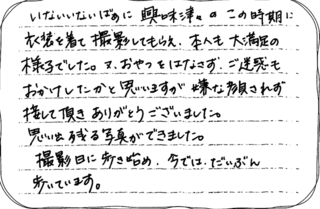 いないいないばぁに 興味津々の この時期に
衣装を着て 撮影してもらえ、本人も 大満足の
様子でした。又、おやつをはなさず、ご迷惑も
おかけしたかと思いますが 嫌な顔されず
接して頂き ありがとうございました。
思い出残る写真ができました。
撮影日に 歩き始め、今では、だいぶん
歩いています。